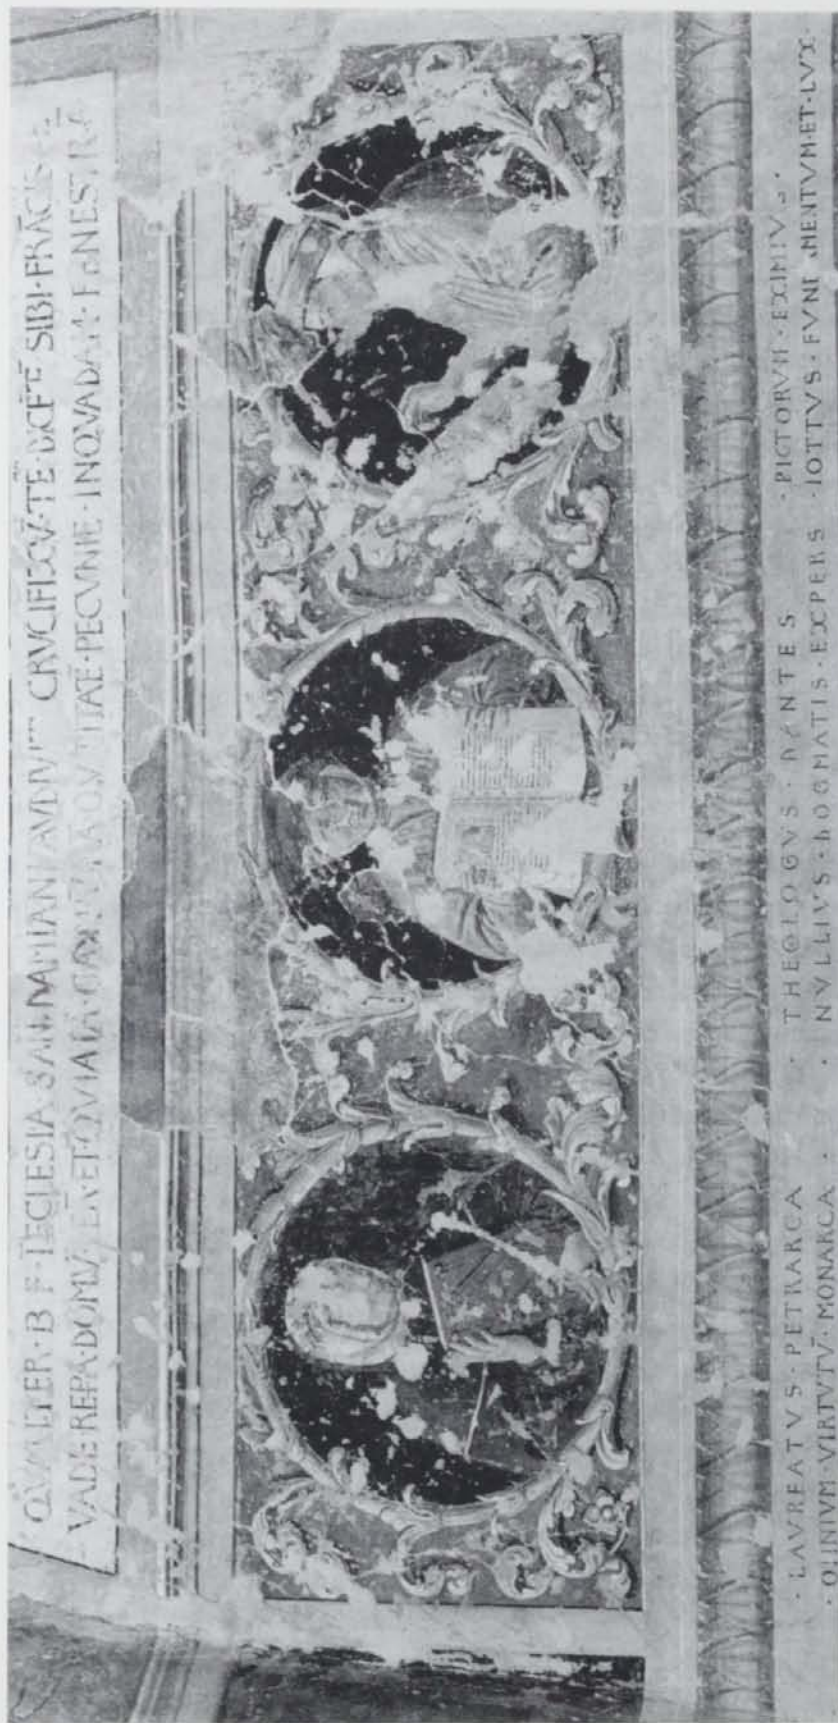 QVALITER · B · F · I ECLESIA SAN DAMIANI AVDIVIT CRVCIFIXV · TE · DICETE SIBI · FRACISCE
VADE REPA DOMV MEA ET QVIA PECVNIE · IN QVADAM · FENESTRA
· LAVREATVS · PETRARCA · THEOLOGVS · DANTES · PICTORVM · EXIMIVS ·
· OMNIVM · VIRTVTV · MONARCA · · NVLLIVS · DOGMATIS · EXPERS IOTTVS · FVNDAMENTVM · ET · LVX ·